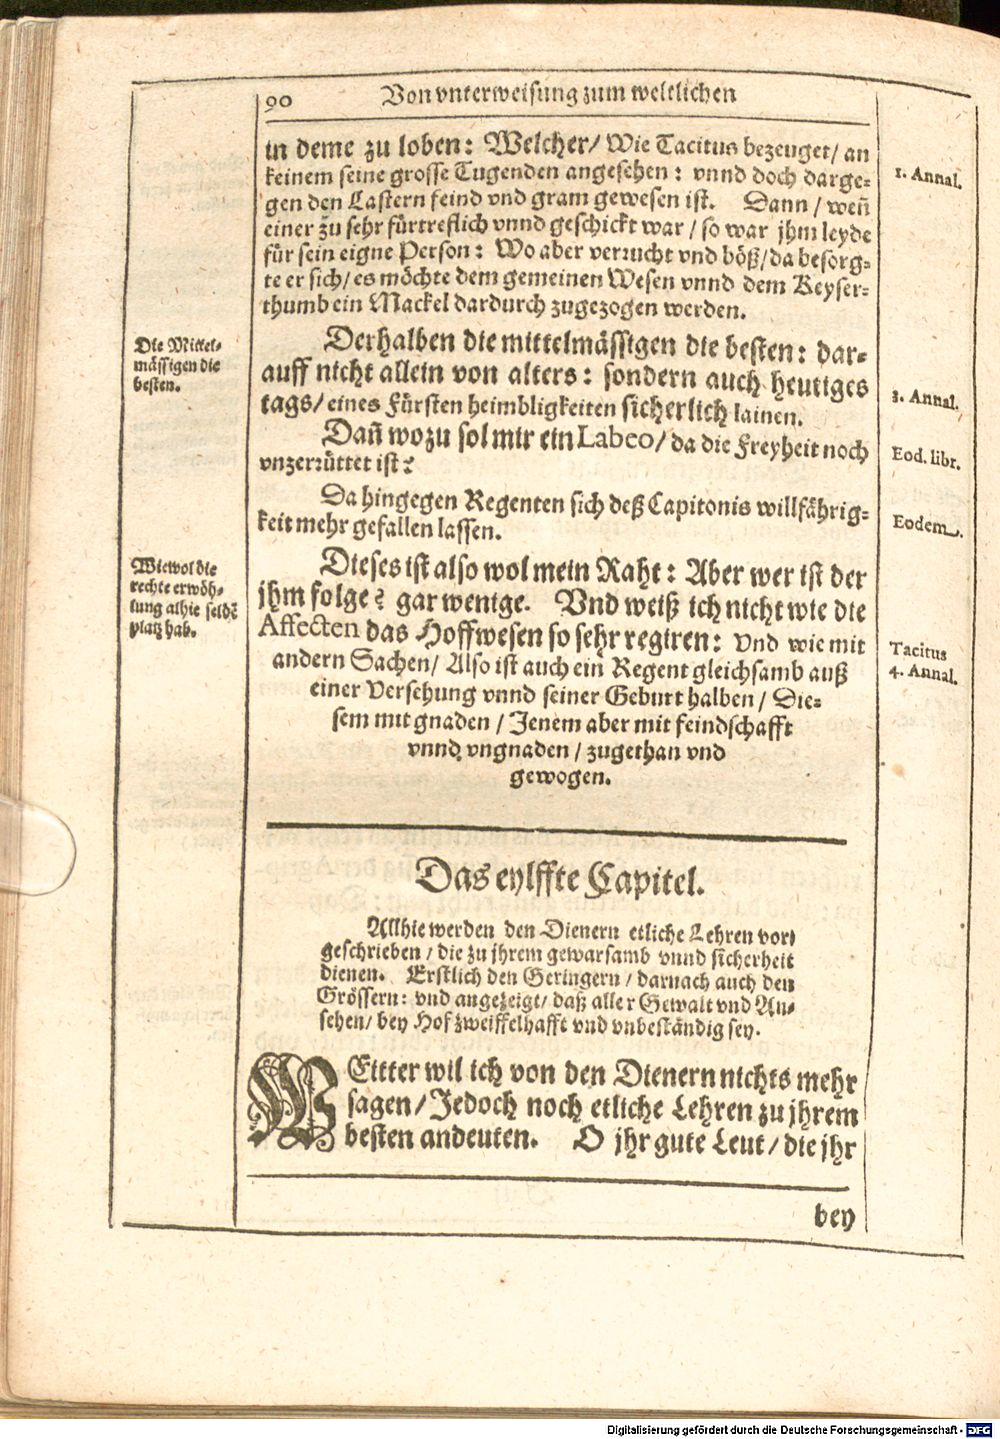 90
Von vnterweisung zum weltlichen
in deme zu loben: Welcher/ Wie Tacitus bezeuget/ an
keinem seine grosse Tugenden angesehen: vnnd doch darge-
gen den Lastern feind vnd gram gewesen ist. Dann / weñ
einer zu sehr fürtreflich vnnd geschickt war / so war jhm leyde
für sein eigne Person: Wo aber verrucht vnd böß/ da besorg-
te er sich/ es möchte dem gemeinen Wesen vnnd dem Keyser-
thumb ein Mackel dardurch zugezogen werden.
1. Annal.
Die Mittel-
mässigen die
besten.
Derhalben die mittelmässigen die besten: dar-
auff nicht allein von alters: sondern auch heutiges
tags/ eines Fürsten heimbligkeiten sicherlich lainen.
3. Annal.
Dañ wozu sol mir ein Labeo/ da die Freyheit noch
vnzerrüttet ist?
Eod. libr.
Da hingegen Regenten sich deß Capitonis willfährig-
keit mehr gefallen lassen.
Eodem.
Wiewol die
rechte erwöh-
lung alhie seldẽ
platz hab.
Dieses ist also wol mein Raht: Aber wer ist der
jhm folge? gar wenige. Vnd weiß ich nicht wie die
Affecten das Hoffwesen so sehr regiren: vnd wie mit
andern Sachen/ Also ist auch ein Regent gleichsamb auß
einer Versehung vnnd seiner Geburt halben / Die-
sem mit gnaden / Jenem aber mit feindschafft
vnnd vngnaden / zugethan vnd
gewogen.
Tacitus
4. Annal.
Das eylffte Capitel.
Allhie werden den Dienern etliche Lehren vor-
geschrieben / die zu jhrem gewarsamb vnnd sicherheit
dienen. Erstlich den Geringern / darnach auch den
Grössern: vnd angezeigt/ daß aller Gewalt vnd An-
sehen/ bey Hof zweiffelhafft vnd vnbeständig sey.
WEitter wil ich von den Dienern nichts mehr
sagen/ Jedoch noch etliche Lehren zu jhrem
besten andeuten. O jhr gute Leut / die jhr
bey
Digitalisierung gefördert durch die Deutsche Forschungsgemeinschaft - DFG